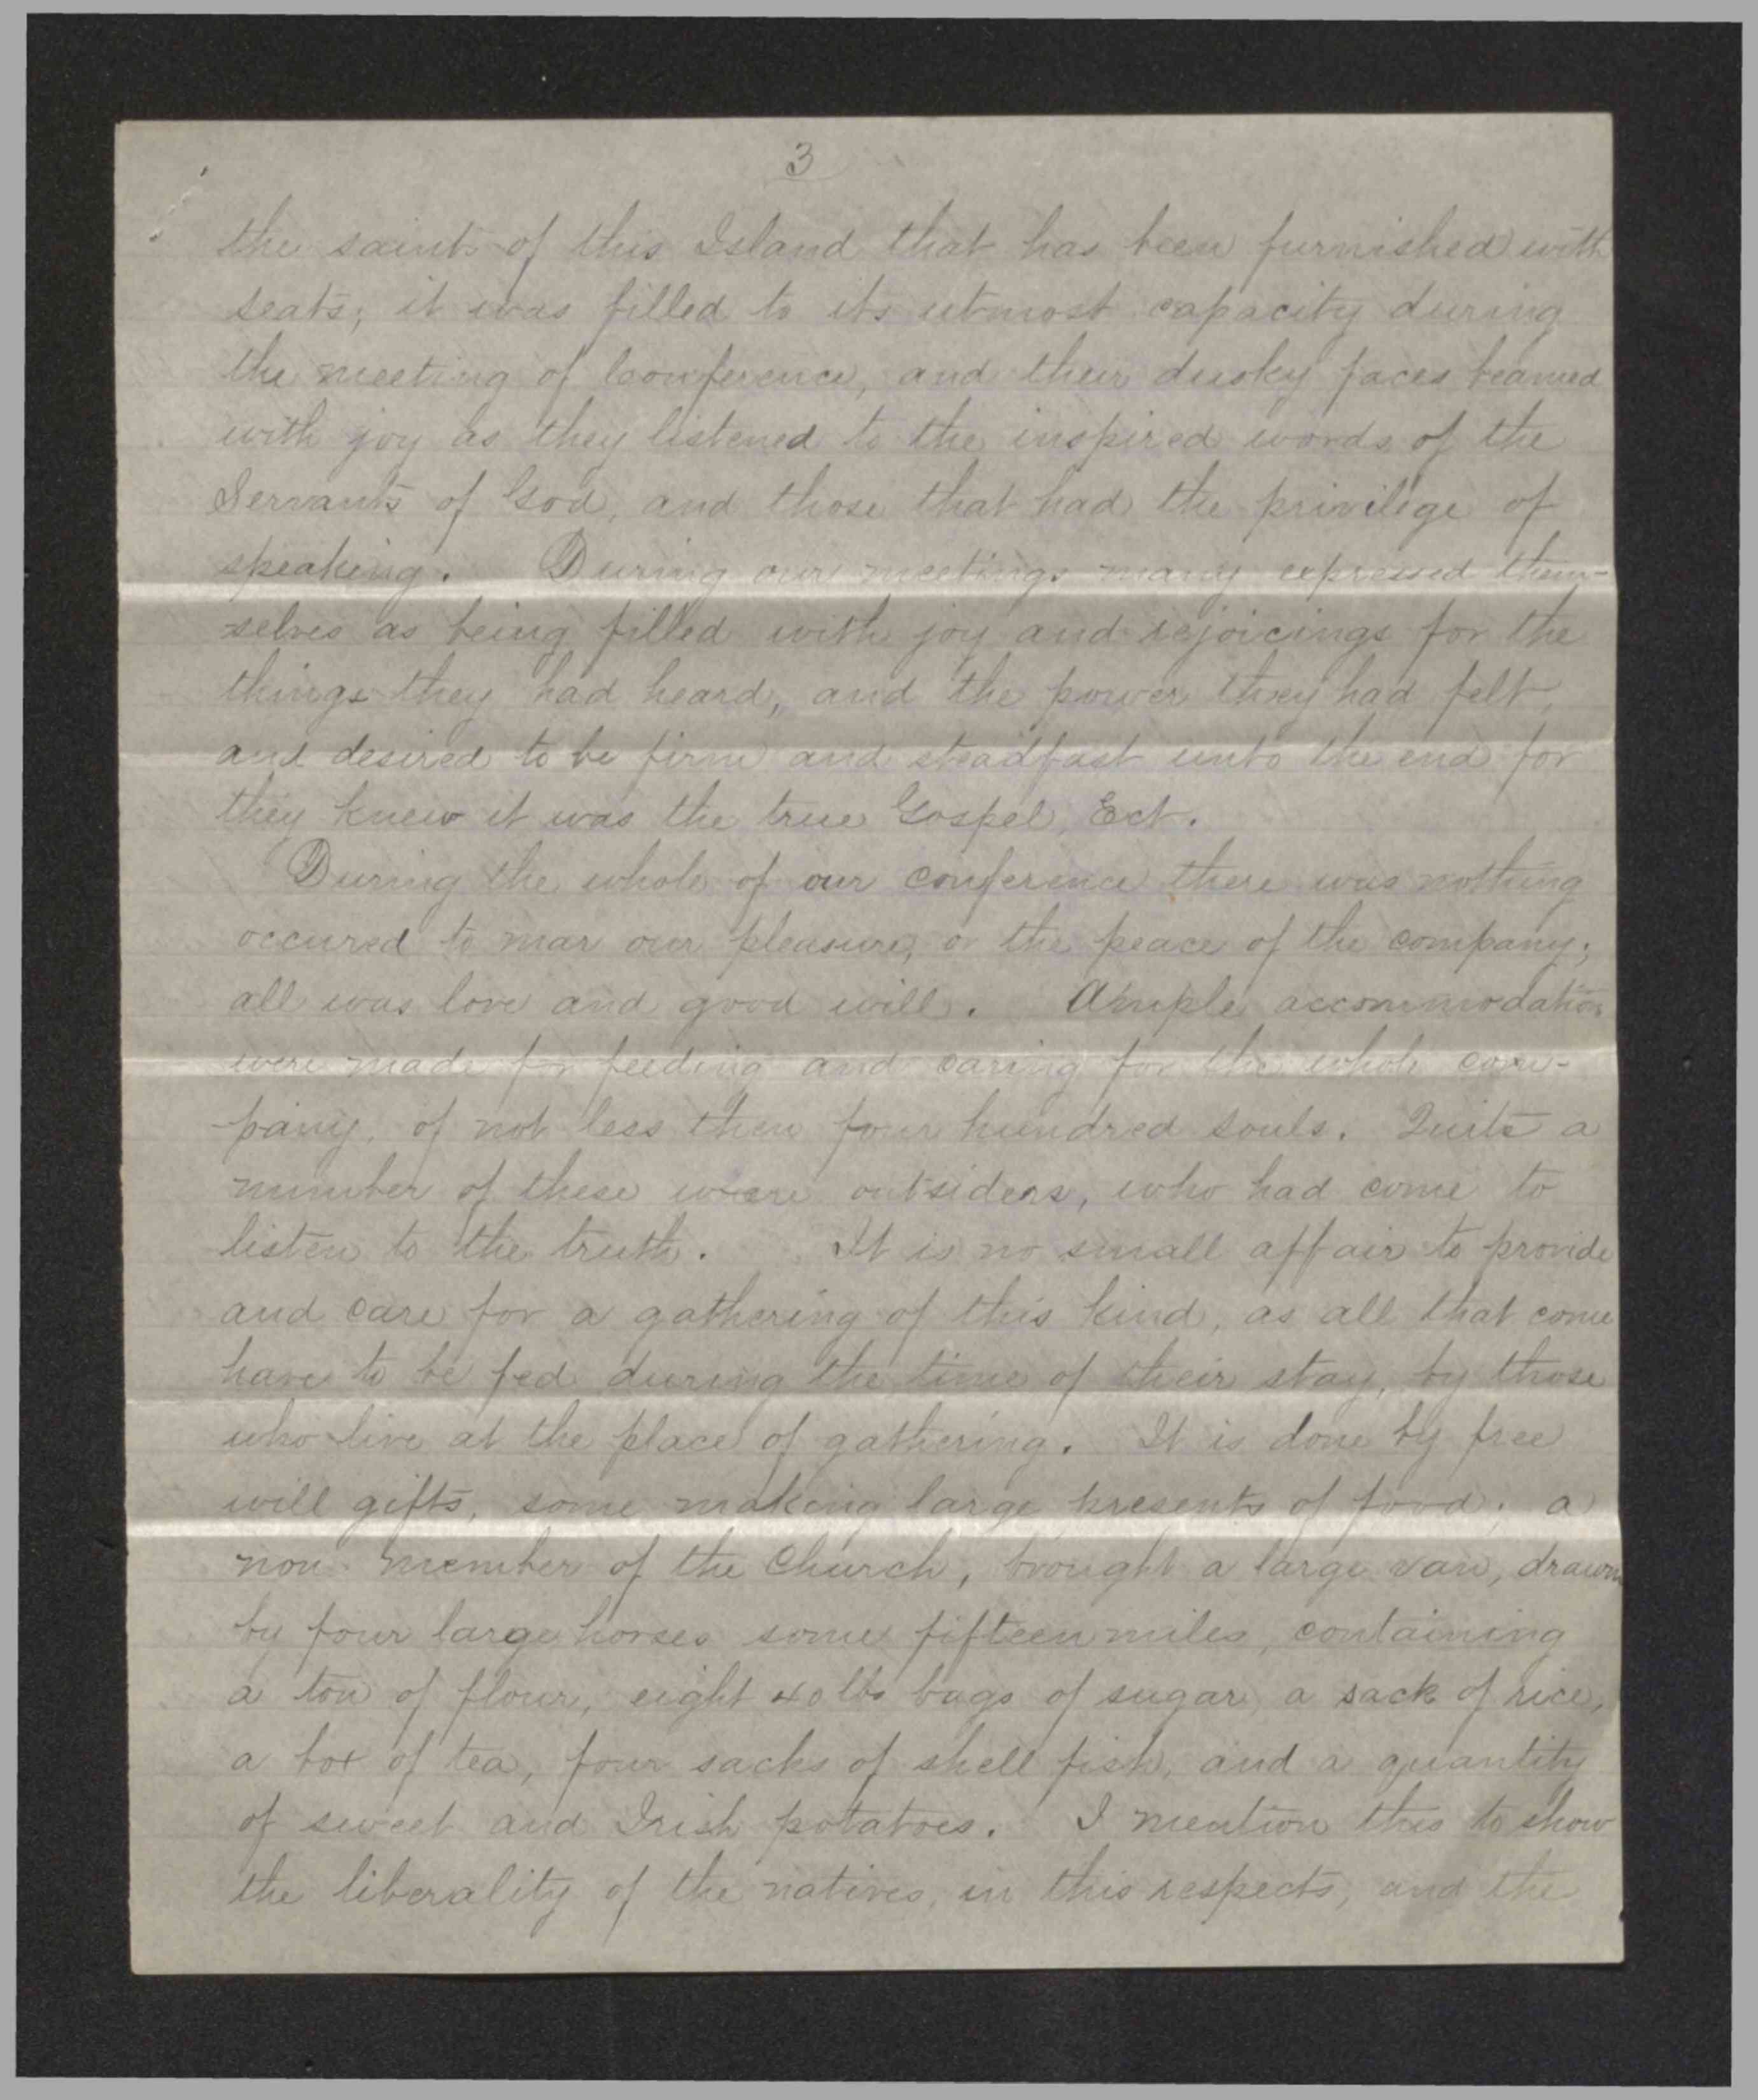 3
the saints of this Island that has been furnished with
seats; it was filled to its utmost capacity during
the meeting of Conference, and their dusky faces beamed
with joy as they listened to the inspired words of the
Servants of God, and those that had the privilege of
speaking. During our meetings many expressed them-
-selves as being filled with joy and rejoicings for the
things they had heard, and the power they had felt,
and desired to be firm and steadfast unto the end for
they knew it was the true Gospel, Ect.
During the whole of our conference there was nothing
occured to mar our pleasure, or the peace of the company;
all was love and good will. Ample accommodations
were made for feeding and caring for the whole com-
-pany, of not less then four hundred souls. Quite a
number of these were outsiders, who had come to
listen to the truth. It is no small affair to provide
and care for a gathering of this kind, as all that come
have to be fed during the time of their stay, by those
who live at the place of gathering. It is done by free
will gifts, some making large presents of food; a
non-member of the Church, brought a large van, drawn
by four large horses some fifteen miles, containing
a ton of flour, eight 40 lbs bags of sugar, a sack of rice,
a box of tea, four sacks of shell fish, and a quantity
of sweet and Irish potatoes. I mention this to show
the liberality of the natives, in this respects, and the